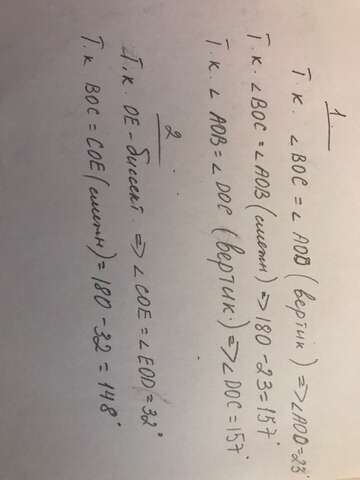 1.
Т.к. ∠BOC = ∠AOD (вертик) => ∠AOD = 23°
Т.к. ∠BOC = ∠AOB (смежн) => 180 - 23 = 157°
Т.к. ∠AOB = ∠DOC (вертик.) => ∠DOC = 157°
2
Т.к. OE - биссект => ∠COE = ∠EOD = 32°
Т.к BOC = COE (смежн) = 180 - 32 = 148°